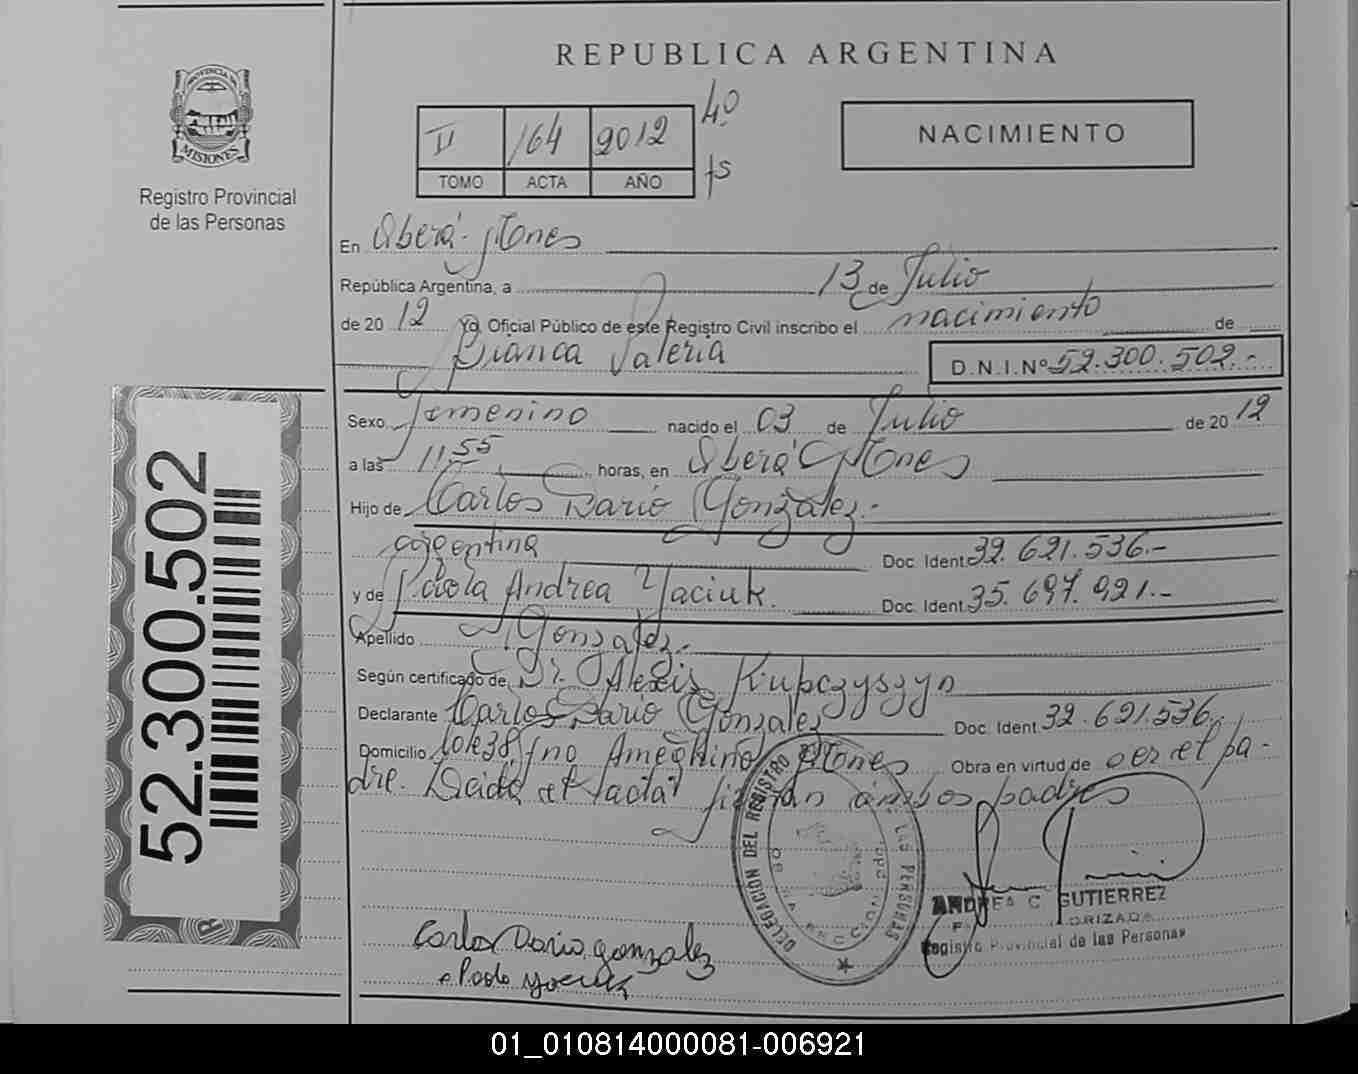 REPUBLICA ARGENTINA
PROVINCIA DE
MISIONES
Registro Provincial
de las Personas
II 164 2012 40
TOMO ACTA AÑO fs
NACIMIENTO
En Oberá - Mnes
República Argentina, a 13 de Julio
de 20 12 Yo, Oficial Público de este Registro Civil inscribo el nacimiento de
Bianca Valeria D.N.I.Nº 52.300.502.-
Sexo Femenino nacido el 03 de Julio de 20 12
a las 11,55 horas, en Oberá Mnes
Hijo de Carlos Dario Gonzalez.-
argentina Doc. Ident. 32.621.536.-
y de Paola Andrea Yaciuk. Doc. Ident. 35.697.921.-
Apellido Gonzalez.-
Según certificado de Dr. Alexis Kupczyszyn
Declarante Carlos Dario Gonzalez Doc. Ident. 32.621.536.
Domicilio Ameghino Mnes Obra en virtud de ser el pa-
dre. Leida el acta firman ambos padres
52.300.502
DELEGACION DEL REGISTRO LAS PERSONAS
ANDREA C. GUTIERREZ
Registro Provincial de las Personas
Carlos Dario gonzalez
01_010814000081-006921